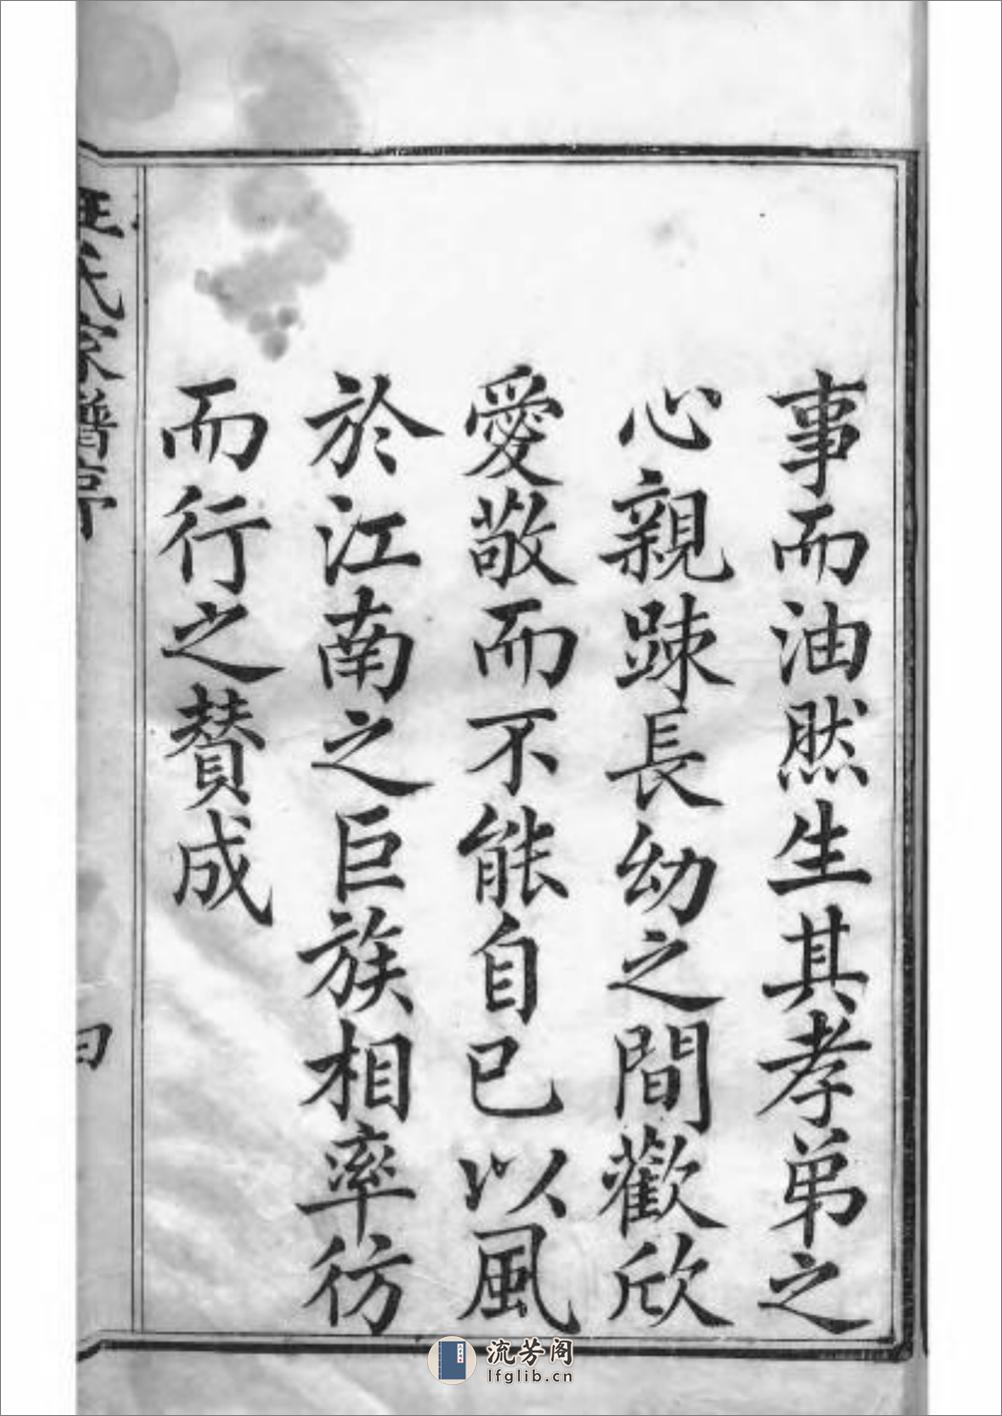 事而油然生其孝弟之
心親踈長幼之間歡欣
愛敬而不能自已以風
於江南之巨族相率彷
而行之贊成
氏家譜序
流芳阁
lfglib.cn